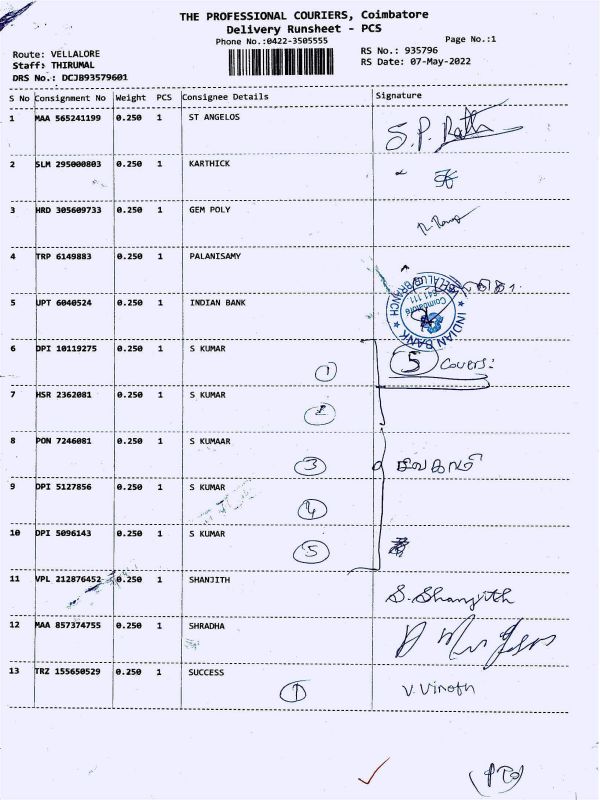 THE PROFESSIONAL COURIERS, Coimbatore
Delivery Runsheet - PCS
Phone No.:0422-3505555
Page No.:1
Route: VELLALORE
RS No.: 935796
Staff: THIRUMAL
RS Date: 07-May-2022
DRS No.: DCJB93579601
S No Consignment No Weight PCS Consignee Details Signature
1 MAA 565241199 0.250 1 ST ANGELOS
2 SLM 295000803 0.250 1 KARTHICK
3 HRD 305609733 0.250 1 GEM POLY
4 TRP 6149883 0.250 1 PALANISAMY
5 UPT 6040524 0.250 1 INDIAN BANK
INDIAN BANK
BRANCH
Coimbatore
641 111
6 DPI 10119275 0.250 1 S KUMAR 1 5 Covers:
7 HSR 2362081 0.250 1 S KUMAR 2
8 PON 7246081 0.250 1 S KUMAAR 3
9 DPI 5127856 0.250 1 S KUMAR 4
10 DPI 5096143 0.250 1 S KUMAR 5
11 VPL 212876452 0.250 1 SHANJITH S. Shanjith
12 MAA 857374755 0.250 1 SHRADHA
13 TRZ 155650529 0.250 1 SUCCESS 1 V. Vinoth